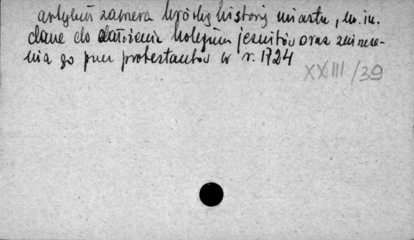 artykuł zawiera krótką historię miasta, m.in.
dane do założenia kolegium jezuitów oraz zniszcze-
nia go przez protestantów w r. 1724
XXIII/39